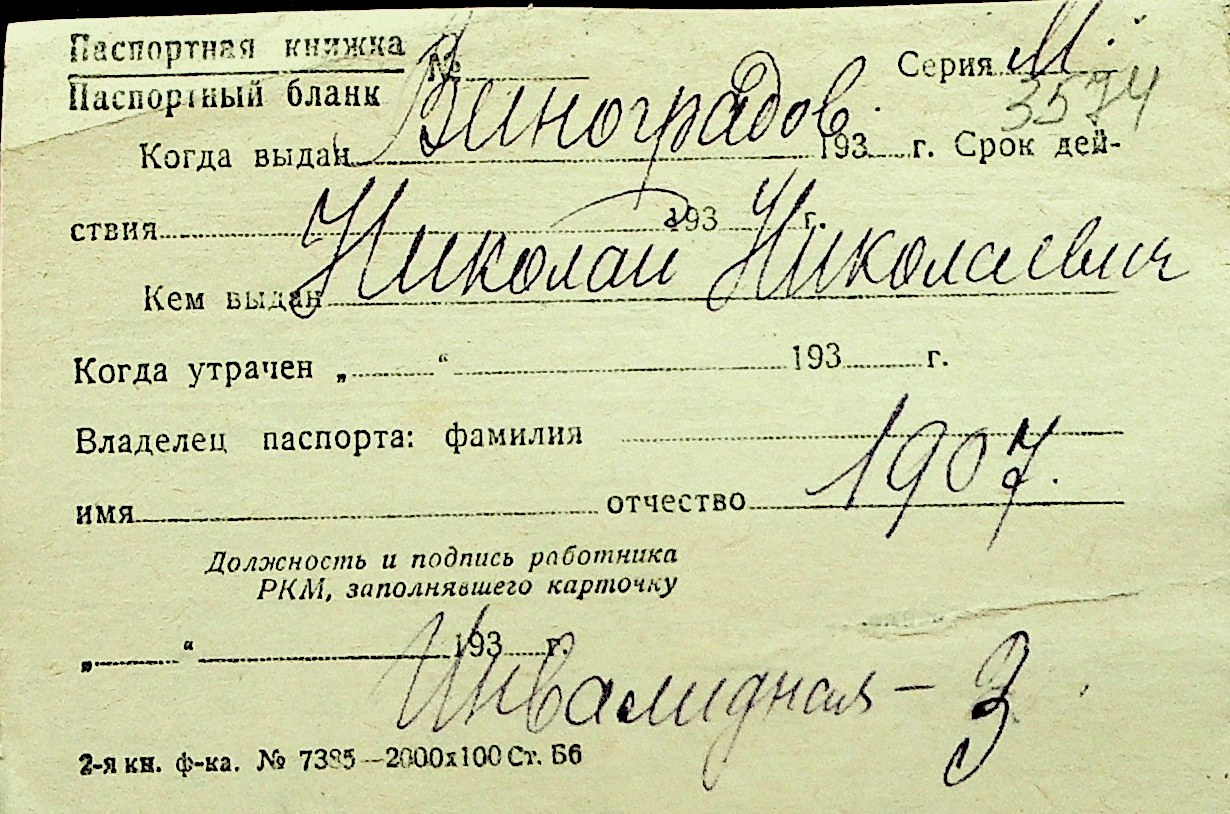 Паспортная книжка
Паспортный бланк № Серия М.
3574
Виноградов
Когда выдан 193 г. Срок дей-
ствия 193 г.
Николай Николаевич
Кем выдан
Когда утрачен „ “ 193 г.
Владелец паспорта: фамилия
1907.
имя отчество
Должность и подпись работника
РКМ, заполнявшего карточку
„ “ 193 г.
Инвалидная – 3
2-я кн. ф-ка. № 7385—2000х100 Ст. Б6